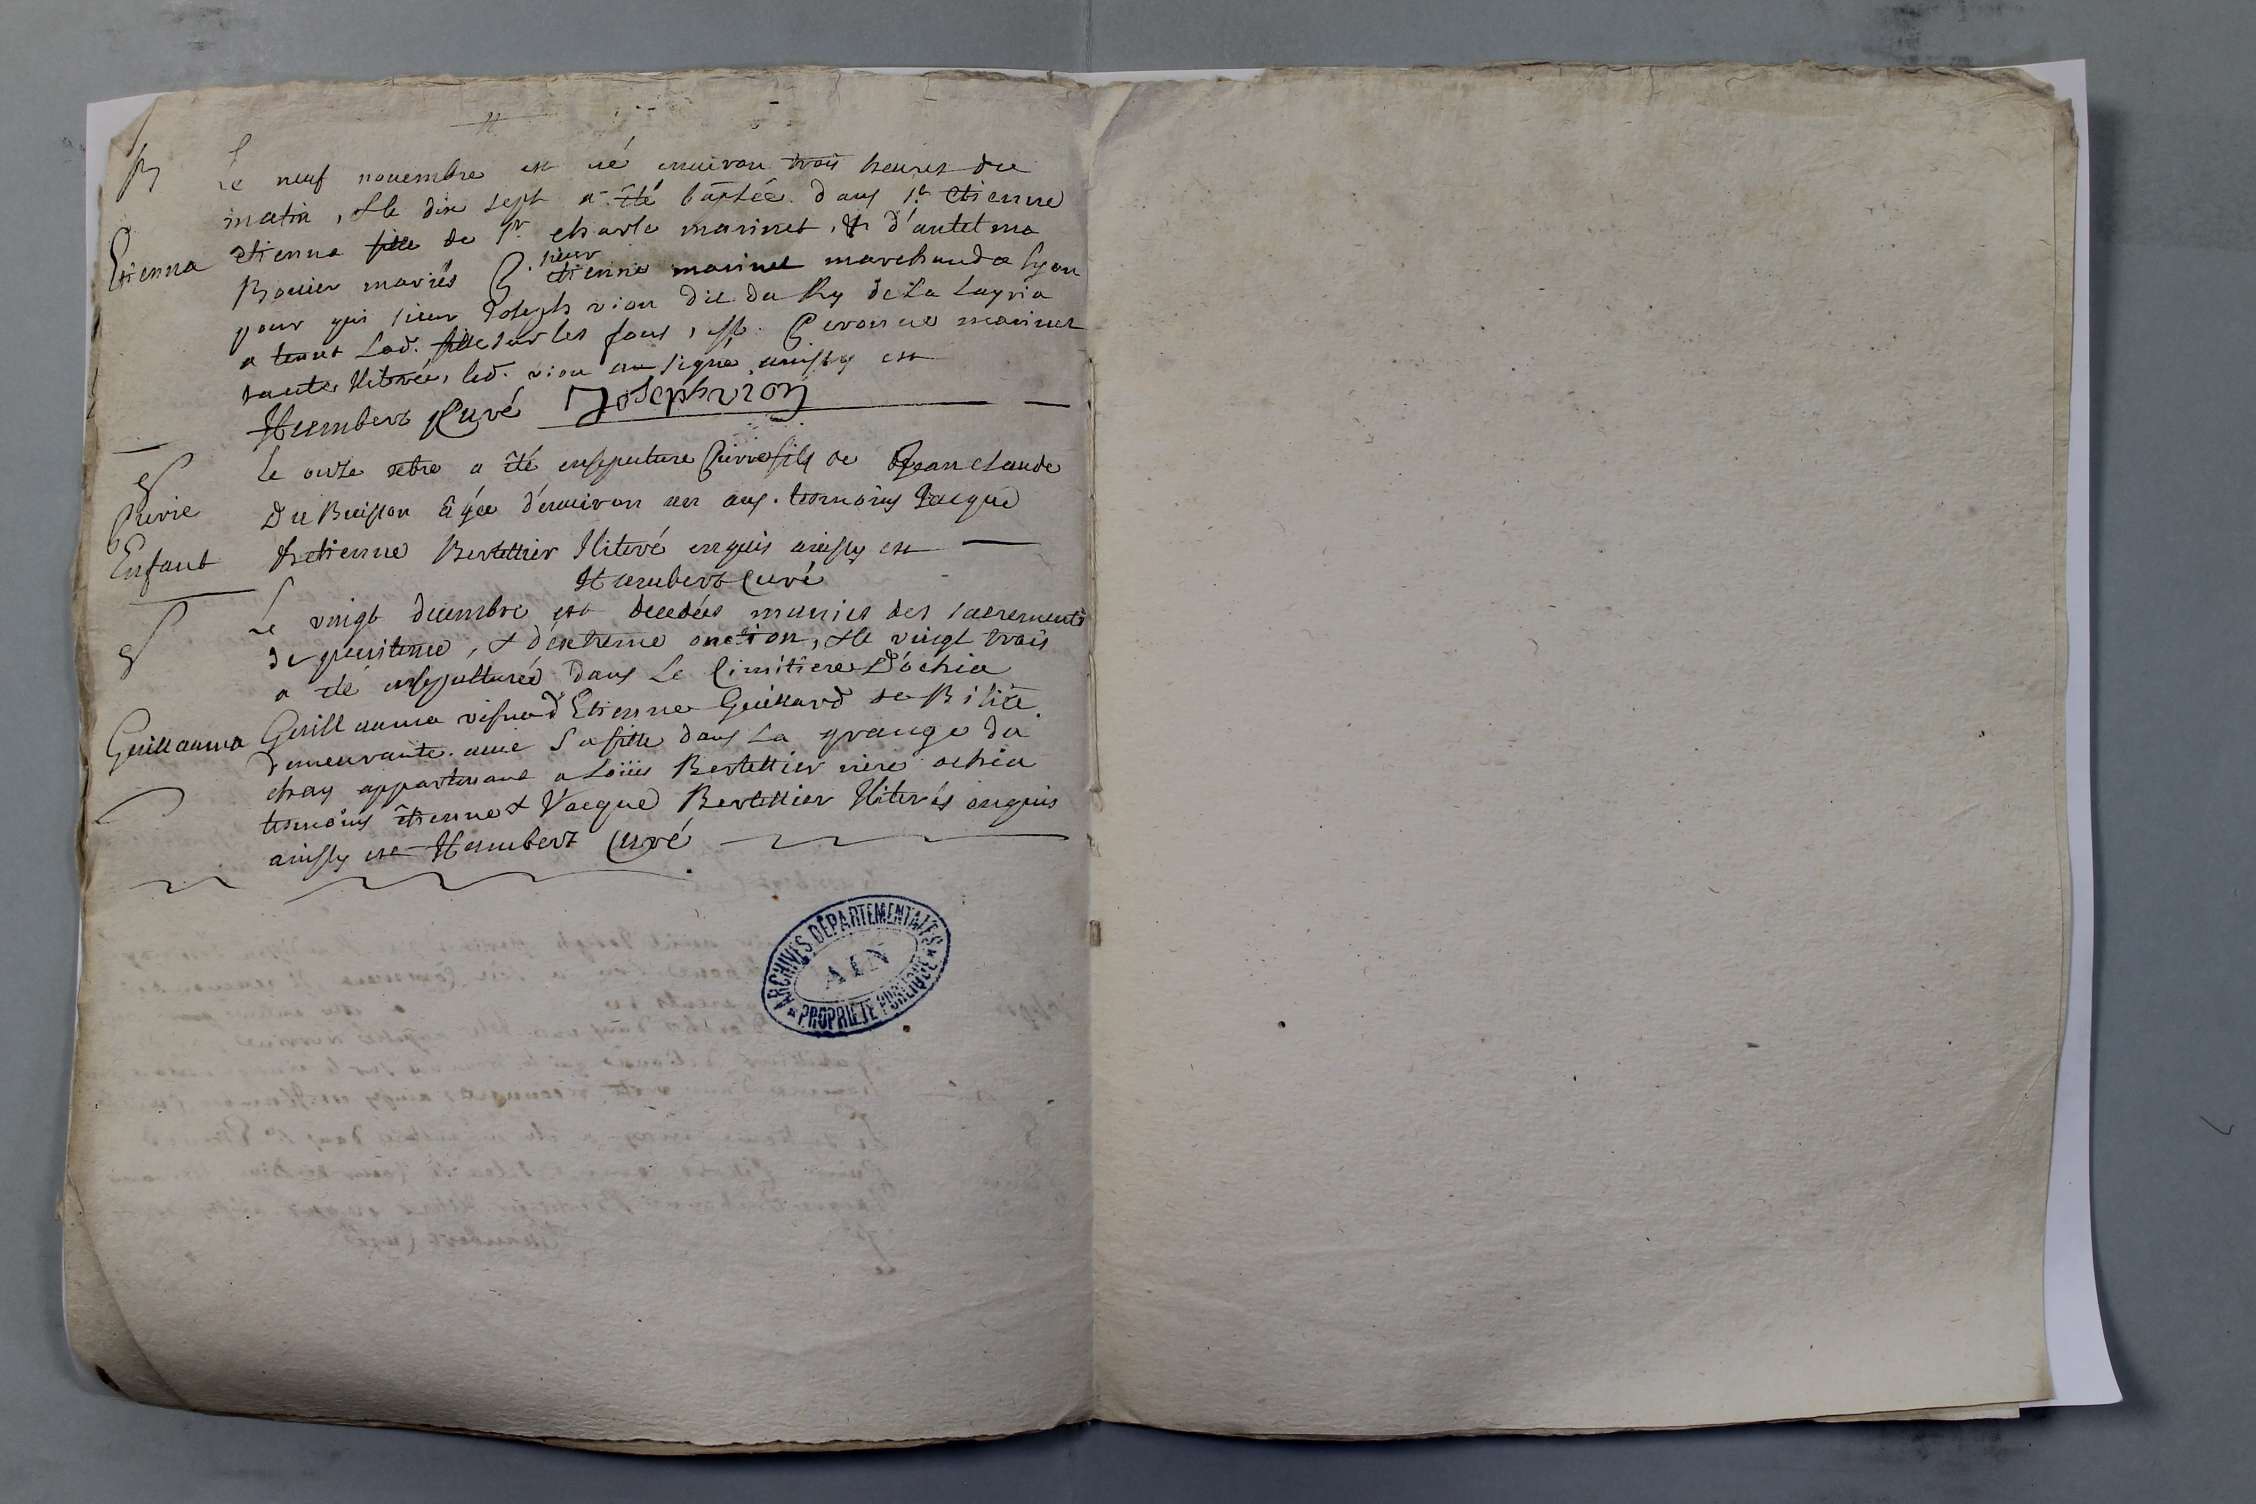 B
Le neuf novembre est né environ trois heures du
matin, & le dix sept a été baptsée dans St Etienne
Etienna
etienna fille de Sr charle marinet, & d'antelma
Bouier mariés P. sieur etienne marinet marchand a lyon
pour qui sieur Joseph vion dit du Ry de La Layria
a tenut Lad. fille sur les fons, Peronne marinet
tante illitérée, led. vion a signé ainssy est
Humbert Curé Joseph vion
S
Le onze xbre a été ensepulture Pierre fils de Jean claude
Pierre
Du Buisson âgée d'environ un ans. tesmoins Jacque
Enfant
& etienne Bertettier illiteré enquis ainssy est
Humbert Curé
S
Le vingt decembre est decedée munies des sacrements
de penitence, & d'extreme onction, & le vingt trois
a été ensepulturée dans Le Cimitiere d'ochia
Guillauma
Guillauma vefve d'Etienne Guillard
demeurante avec sa fille dans La grange du
chay appartenant a Loüis Bertettier riere ochia
tesmoins étienne & Jacque Bertettier illiterés enquis
ainssy est Humbert Curé
ARCHIVES DÉPARTEMENTALES
AIN
PROPRIÉTÉ PUBLIQUE